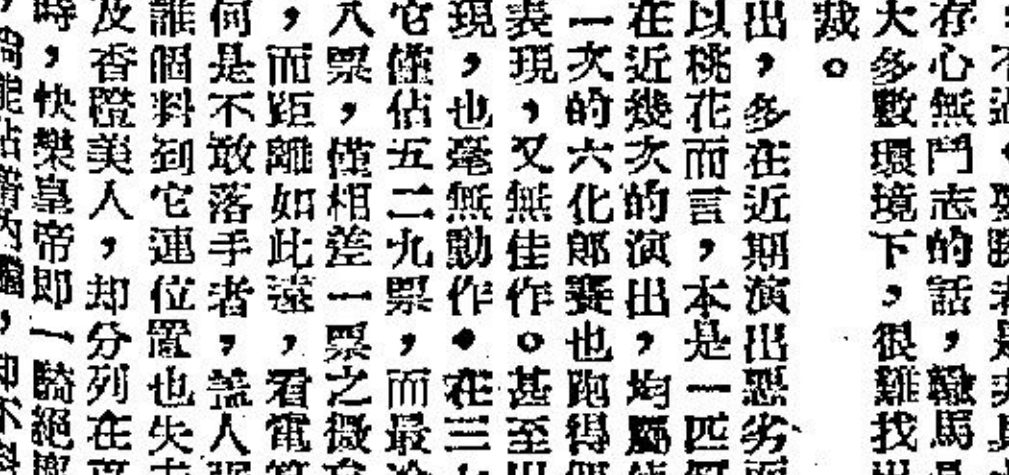 存心無鬥志的話，輸馬
大多數環境下，很難找
裁。
出，多在近期演出惡劣而
以桃花而言，本是一匹
在近幾次的演出，均屬
一次的六化郎賽也跑得
表現，又無佳作。甚至
現，也毫無動作。在三
它僅佔五二九票，而最
八票，僅相差一票之微
，而距離如此遠，看電
何是不敢落手者，蓋人
誰個料到它連位置也失
及香橙美人，却分列在
時，快樂皇帝即一騎絕